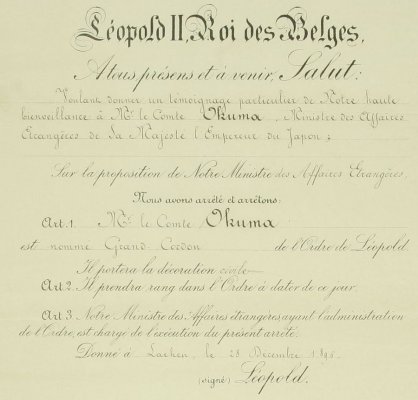 Léopold II, Roi des Belges,
A tous présens et à venir, Salut:
Voulant donner un témoignage particulier de Notre haute
bienveillance à Mr. le Comte Okuma, Ministre des Affaires
Etrangères de Sa Majesté l'Empereur du Japon;
Sur la proposition de Notre Ministre des Affaires Etrangères,
Nous avons arrêté et arrêtons:
Art. 1. Mr. le Comte Okuma
est nommé Grand Cordon de l'Ordre de Léopold.
Il portera la décoration civile
Art. 2. Il prendra rang dans l'Ordre à dater de ce jour.
Art. 3. Notre Ministre des Affaires étrangères, ayant l'administration
de l'Ordre, est chargé de l'exécution du présent arrêté.
Donné à Laeken, le 28 Décembre
(signé) Léopold.